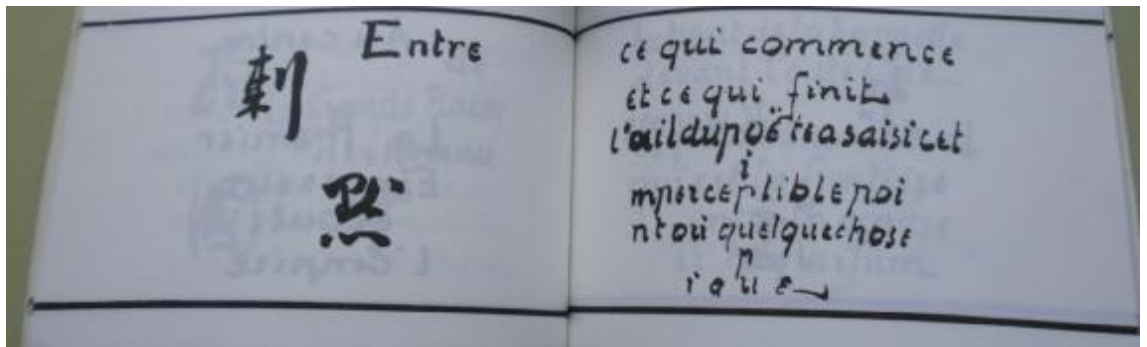 刺
點
Entre
ce qui commence
et ce qui finit
l'œil du poëte a saisi cet
i
mperceptible poi
nt où quelque chose
p
ique